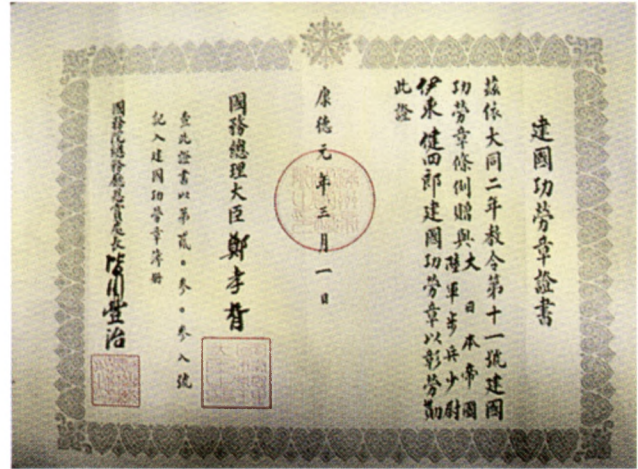 建國功勞章證書
茲依大同二年教令第十一號建國
功勞章條例贈與大日本帝國陸軍步兵少尉
伊東健四郎建國功勞章以彰勞勳
此證
康德元年三月一日
國務總理大臣 鄭孝胥
查此證書以第貳〇參〇參八號
記入建國功勞章簿冊
國務院總務廳恩賞處長 皆川豐治